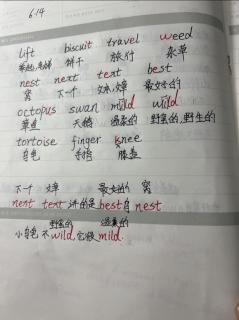 6.14
lift biscuit travel weed
举起,电梯 饼干 旅行 杂草
nest next text best
窝 下一个 文本,文章 最好的
octopus swan mild wild
章鱼 天鹅 温柔的 野蛮的,野生的
tortoise finger knee
乌龟 手指 膝盖
下一个 文章 最好的 窝
next text 讲的是 best 的 nest
野蛮的 温柔的
小乌龟不 wild, 它很 mild.